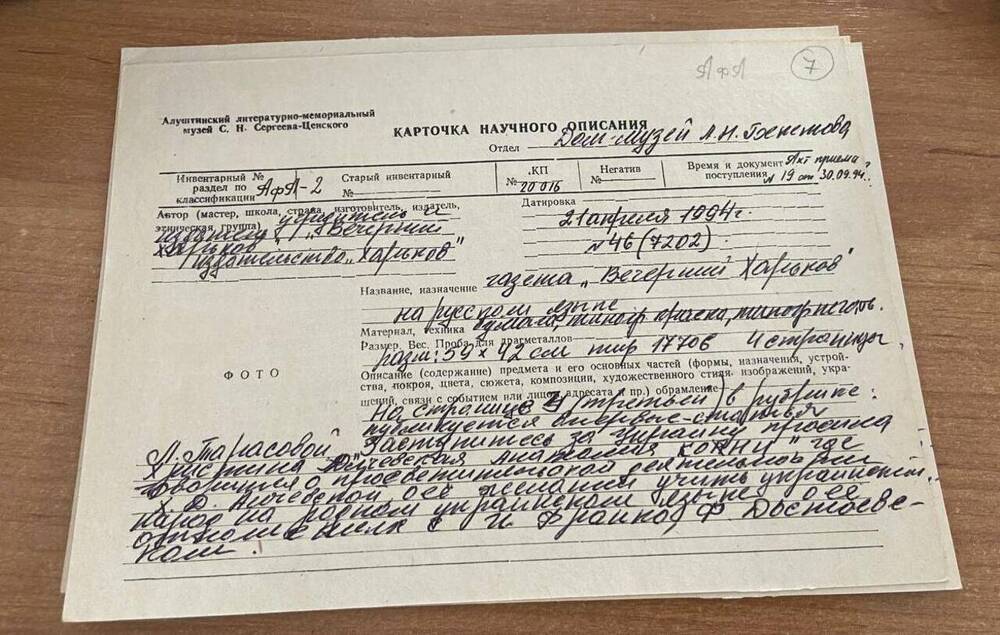 АфА
7
Алуштинский литературно-мемориальный
музей С. Н. Сергеева-Ценского
КАРТОЧКА НАУЧНОГО ОПИСАНИЯ
Отдел Дом-музей А.Н. Бекетова
Инвентарный №
раздел по
классификации АфА-2
Старый инвентарный
№
КП
№ 20016
Негатив
№
Время и документ Акт приема
поступления № 19 от 30.09.94г.
Автор (мастер, школа, страна, изготовитель, издатель,
этническая группа) учредитель и
издатель "Вечерний
Харьков"
издательство "Харьков"
Датировка
21 апреля 1994г.
№46 (7202)
Название, назначение газета "Вечерний Харьков"
на русском языке
Материал, техника бумага, типогр краска, типогр печать
Размер. Вес. Проба для драгметаллов
разм: 59 x 42 см тир 17706 4 страницы
ФОТО
Описание (содержание) предмета и его основных частей (формы, назначения, устрой-
ства, покроя, цвета, сюжета, композиции, художественного стиля изображений, укра-
шений, связи с событием или лицом, адресата и пр.) обрамление
На странице 3 (третьей) в рубрике:
публикуется очерк-статья
Л. Тарасовой "Заступитесь за Украину просила
Христина Алчевская" где
говорится о просветительской деятельности
Х. Д. Алчевской о её желании учить украинский
народ на родном украинском языке о её
отношениях с И Франко, Ф Достоевс-
ким.